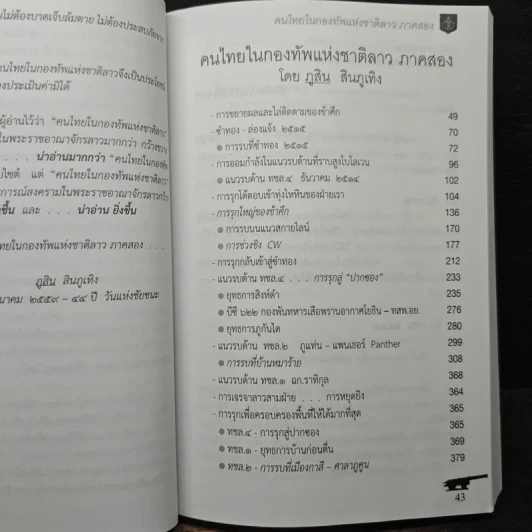 ไม่ต้องบาดเจ็บล้มตาย ไม่ต้องประสบภัยจาก
คนไทยในกองทัพแห่งชาติลาวจึงเป็นประโยชน์
องประเมินค่ามิได้
ผู้อ่านไว้ว่า "คนไทยในกองทัพแห่งชาติลาว"
ในพระราชอาณาจักรลาวมากกว่า กว้างขวาง
. . . . น่าอ่านมากกว่า "คนไทยในกองทัพ
ไซต์ แต่ "คนไทยในกองทัพแห่งชาติลาว"
การณ์สงครามในพระราชอาณาจักรลาวกว้าง
ขึ้น และ . . . น่าอ่าน ยิ่งขึ้น
ไทยในกองทัพแห่งชาติลาว ภาคสอง . . .
ภูสิน สินภูเทิง
นาคม ๒๕๕๙ – ๔๔ ปี วันแห่งชัยชนะ
คนไทยในกองทัพแห่งชาติลาว ภาคสอง
คนไทยในกองทัพแห่งชาติลาว ภาคสอง
โดย ภูสิน สินภูเทิง
- การขยายผลและไล่ติดตามของข้าศึก 49
- ซำทอง - ล่องแจ้ง ๒๕๑๕ 70
● การรบที่ซำทอง ๒๕๑๕ 72
- การออมกำลังในแนวรบด้านที่ราบสูงโบโลเวน 96
● แนวรบด้าน ทชล.๔ ธันวาคม ๒๕๑๔ 102
- การรุกโต้ตอบเข้าทุ่งไหหินของฝ่ายเรา 104
- การรุกใหญ่ของข้าศึก 136
● การรบบนแนวสกายไลน์ 170
● การช่วงชิง CW 177
- การรุกกลับเข้าสู่ซำทอง 212
- แนวรบด้าน ทชล.๔ . . . การรุกสู่ "ปากซอง" 233
● ยุทธการสิงห์ดำ 235
● บีซี ๖๒๒ กองพันทหารเสือพรานอากาศโยธิน – ทสพ.อย. 276
● ยุทธการภูกันใด 280
- แนวรบด้าน ทชล.๒ ภูแท่น – แพนเธอร์ Panther 299
● การรบที่บ้านหมาร้าย 308
- แนวรบด้าน ทชล.๑ ฉก.ราทิกุล 368
- การเจรจาลาวสามฝ่าย . . . การหยุดยิง 364
- การรุกเพื่อครอบครองพื้นที่ให้ได้มากที่สุด 365
● ทชล.๔ - การรุกสู่ปากซอง 365
● ทชล.๑ - ยุทธการบ้านก่อนตื่น 369
● ทชล.๒ - การรบที่เมืองกาสี – ศาลาภูคูน 379
43